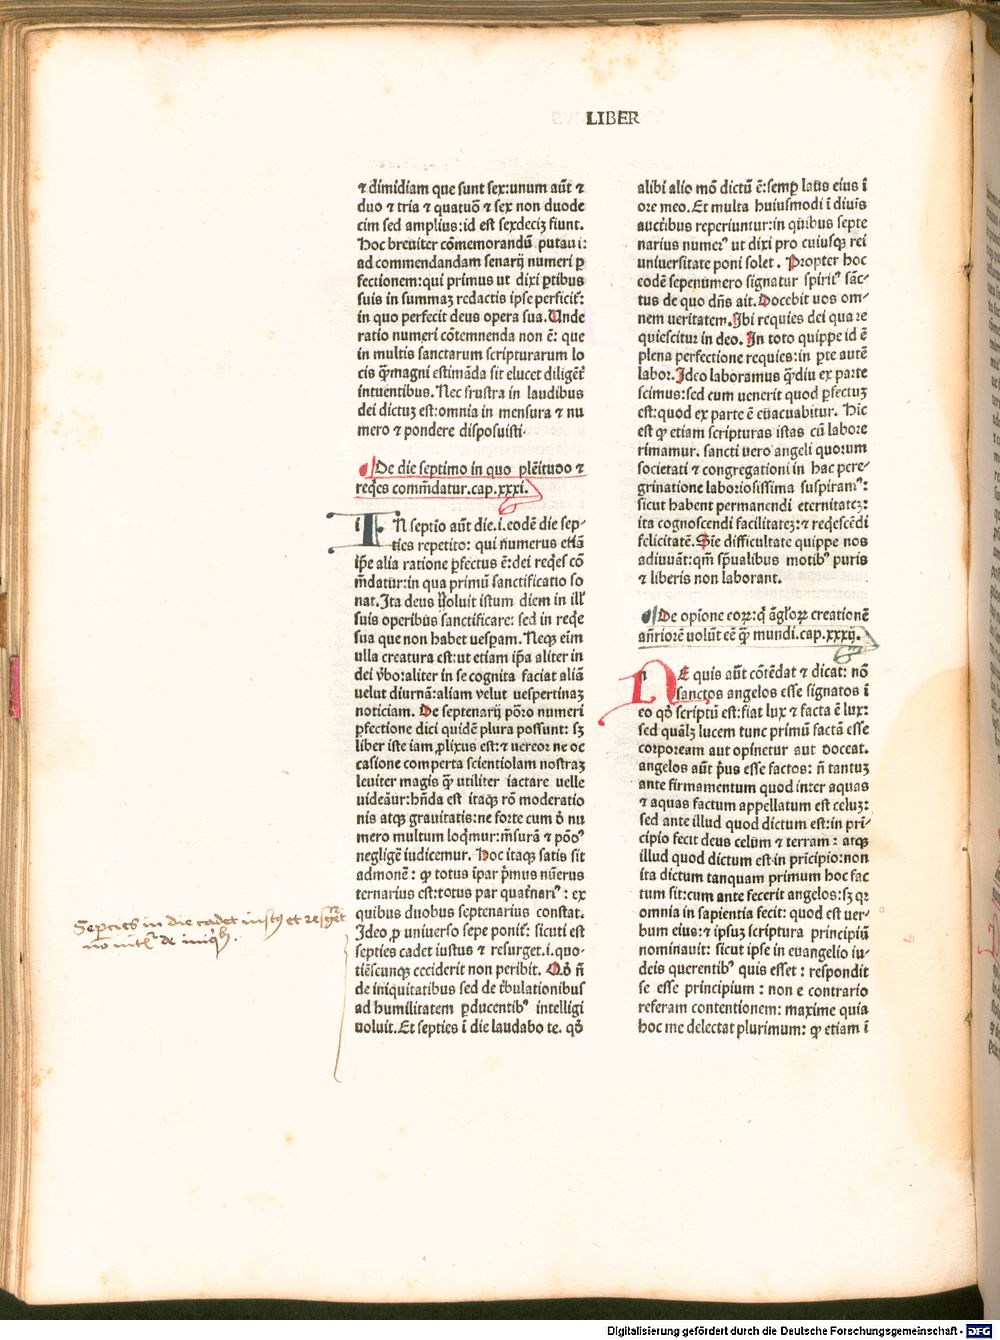 LIBER
⁊ dimidiam que sunt sex:unum aūt ⁊
duo ⁊ tria ⁊ quatuō ⁊ sex non duode
cim sed amplius:id est sexdeciꝫ fiunt.
Hoc breuiter cōmemorandū putaui:
ad commendandam senarij numeri ꝑ
fectionem:qui primus ut dixi ꝑtibus
suis in summaꝫ redactis ipse perficit̄:
in quo perfecit deus opera sua. Unde
ratio numeri cōtemnenda non ē: que
in multis sanctarum scripturarum lo
cis q̄ꝫmagni estimāda sit elucet diligēt̄
intuentibus. Nec frustra in laudibus
dei dictuꝫ est:omnia in mensura ⁊ nu
mero ⁊ pondere disposuisti.
De die septimo in quo plēitudo ⁊
reqēs commēdatur.cap.xxxi.
iN septīo aūt die.i.eodē die sep-
ties repetito: qui numerus etiā
ip̄e alia ratione ꝑfectus ē:dei reqēs cō
mēdatur:in qua primū sanctificatio so
nat. Ita deus noluit istum diem in ill̄
suis operibus sanctificare: sed in reqē
sua que non habet uesꝑam. Neqꝫ eim
ulla creatura est:ut etiam ip̄a aliter in
dei v̄bo:aliter in se cognita faciat aliā
uelut diurnā:aliam velut uespertinaꝫ
noticiam. De septenarij pōro numeri
ꝑfectione dici quidē plura possunt: sꝫ
liber iste iam ꝓlixus est:⁊ uereor ne oc
casione comperta scientiolam nostraꝫ
leuiter magis q̄ꝫ utiliter iactare uelle
uideāur:hn̄da est itaqꝫ rō moderatio
nis atqꝫ grauitatis:ne forte cum ō nu
mero multum loqm̄ur:m̄surā ⁊ pōoꝰ
negligē iudicemur. Hoc itaqꝫ satis sit
admonē: qꝫ totus īpar pⁱmus nūerus
ternarius est:totus par quat̄nariꝰ: ex
quibus duobus septenarius constat.
Ideo ꝓ uniuerso sepe ponit̄: sicuti est
septies cadet iustus ⁊ resurget.i.quo-
tiēscunqꝫ ceciderit non peribit. Qō n̄
de iniquitatibus sed de tⁱbulationibus
ad humilitatem ꝑducentibꝰ intelligi
uoluit. Et septies ī die laudabo te. qō
Sepcies in die cadet iustꝰ et resurget
nō intl̄r de iniqͣb.
alibi alio mō dictū ē:semꝑ laus eius ī
ore meo. Et multa huiusmodi ī diuīs
auctībus reperiuntur:in quibus septe
narius numerꝰ ut dixi pro cuiusqꝫ rei
uniuersitate poni solet. Propter hoc
eodē sepenumero signatur spiritꝰ sāc-
tus de quo dn̄s ait. Docebit uos om-
nem ueritatem. Ibi requies dei qua re
quiescitur in deo. In toto quippe id ē
plena perfectione requies:in ꝑte autē
labor. Ideo laboramus q̄ꝫdiu ex parte
scimus:sed cum uenerit quod ꝑfectuꝫ
est:quod ex parte ē euacuabitur. Hīc
est qꝫ etiam scripturas istas cū labore
rimamur. sancti uero angeli quorum
societati ⁊ congregationi in hac pere-
grinatione laboriosissima suspiramꝰ:
sicut habent permanendi eternitateꝫ:
ita cognoscendi facilitateꝫ:⁊ reqēscēdi
felicitatē. Sīe difficultate quippe nos
adiuuāt:qm̄ sp̄ualibus motibꝰ puris
⁊ liberis non laborant.
De opīone eoꝝ:q̄ āgl̄oꝝ creationē
an̄riorē uolūt eē q̄ꝫ mundi.cap.xxxij.
nE quis aūt cōtēdat ⁊ dicat: nō
sanctos angelos esse signatos ī
eo qō scriptū est:fiat lux ⁊ facta ē lux:
sed qualꝫ lucem tunc primū factā esse
corpoream aut opinetur aut doceat.
angelos aūt pⁱus esse factos: n̄ tantuꝫ
ante firmamentum quod inter aquas
⁊ aquas factum appellatum est celuꝫ:
sed ante illud quod dictum est:in pri-
cipio fecit deus celum ⁊ terram: atqꝫ
illud quod dictum est in prīcipio:non
ita dictum tanquam primum hoc fac
tum sit:cum ante fecerit angelos:sꝫ qꝛ
omnia in sapientia fecit: quod est uer-
bum eius:⁊ ipsuꝫ scriptura principiū
nominauit: sicut ipse in euangelio iu-
deis querentibꝰ quis esset: respondit
se esse principium: non e contrario
referam contentionem: maxime quia
hoc me delectat plurimum: qꝫ etiam ī
Digitalisierung gefördert durch die Deutsche Forschungsgemeinschaft - DFG